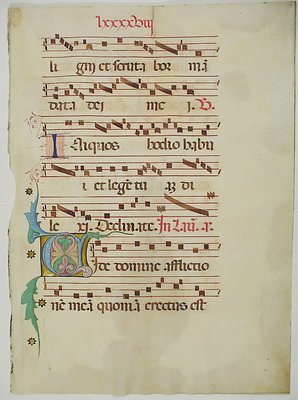 lxxxxviij
li gni et scruta bor mā
data dei me i. V.
Iniquos hodio habu
i et legē tu aȝ di
le xi. Declinate. In Lau. a.
Vide domine afflictio
nē meā quoniā erectus est